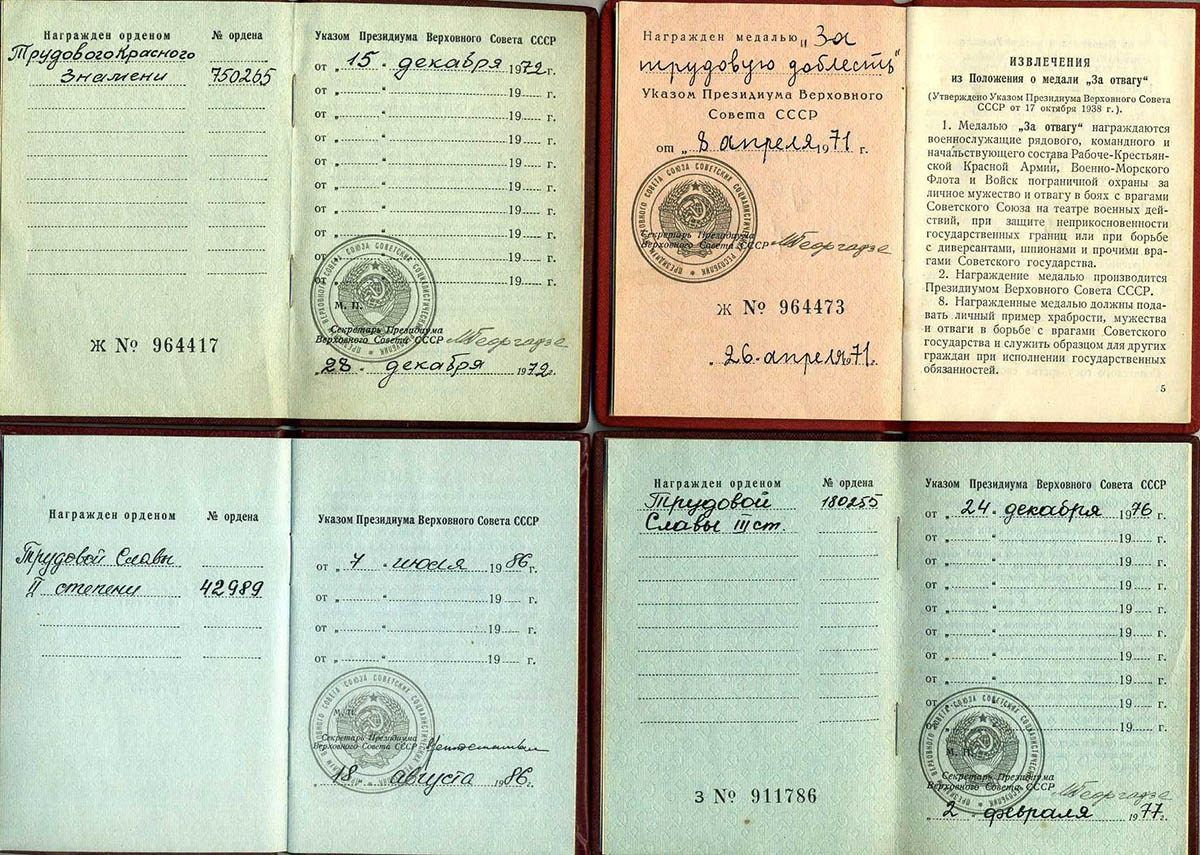 Награжден орденом № ордена
Трудового Красного
Знамени 750265
Ж № 964417
Указом Президиума Верховного Совета СССР
от „ 15 “ декабря 1972 г.
от „ “ 19 г.
от „ “ 19 г.
от „ “ 19 г.
от „ “ 19 г.
от „ “ 19 г.
от „ “ 19 г.
от „ “ 19 г.
от „ “ 19 г.
от „ “ 19 г.
М. П.
Секретарь Президиума
Верховного Совета СССР МГеоргадзе
„ 28 “ декабря 1972 г.
Награжден медалью „За
трудовую доблесть“
Указом Президиума Верховного
Совета СССР
от „ 8 апреля 1971 г.
ПРЕЗИДИУМ ВЕРХОВНОГО СОВЕТА СОЮЗА СОВЕТСКИХ СОЦИАЛИСТИЧЕСКИХ РЕСПУБЛИК
Секретарь Президиума
Верховного Совета СССР МГеоргадзе
Ж № 964473
„ 26 “ апреля 1971 г.
ИЗВЛЕЧЕНИЯ
из Положения о медали „За отвагу“
(Утверждено Указом Президиума Верховного Совета
СССР от 17 октября 1938 г.).
1. Медалью „За отвагу“ награждаются
военнослужащие рядового, командного и
начальствующего состава Рабоче-Крестьян-
ской Красной Армии, Военно-Морского
Флота и Войск пограничной охраны за
личное мужество и отвагу в боях с врагами
Советского Союза на театре военных дей-
ствий, при защите неприкосновенности
государственных границ или при борьбе
с диверсантами, шпионами и прочими вра-
гами Советского государства.
2. Награждение медалью производится
Президиумом Верховного Совета СССР.
8. Награжденные медалью должны пода-
вать личный пример храбрости, мужества
и отваги в борьбе с врагами Советского
государства и служить образцом для других
граждан при исполнении государственных
обязанностей.
5
Награжден орденом № ордена
Трудовой Славы
II степени 42989
Указом Президиума Верховного Совета СССР
от „ 7 “ июля 1986 г.
от „ “ 19 г.
от „ “ 19 г.
от „ “ 19 г.
М. П.
Секретарь Президиума
Верховного Совета СССР
„ 18 “ августа 1986 г.
Награжден орденом № ордена
Трудовой 180255
Славы III ст.
З № 911786
Указом Президиума Верховного Совета СССР
от „ 24 “ декабря 1976 г.
от „ “ 19 г.
от „ “ 19 г.
от „ “ 19 г.
от „ “ 19 г.
от „ “ 19 г.
от „ “ 19 г.
от „ “ 19 г.
от „ “ 19 г.
от „ “ 19 г.
М. П.
Секретарь Президиума
Верховного Совета СССР МГеоргадзе
„ 2 “ февраля 1977 г.